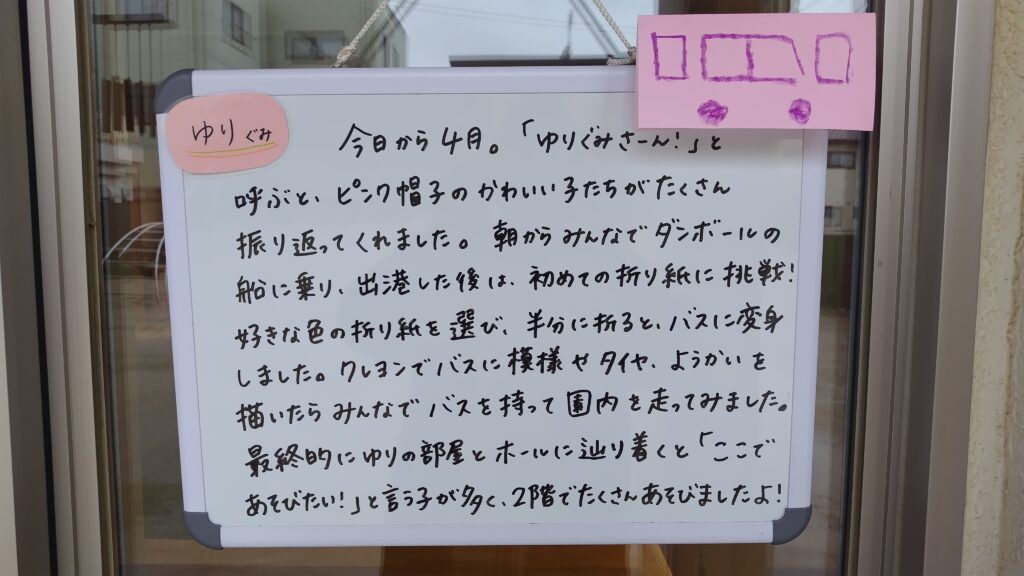 ゆりぐみ
今日から4月。「ゆりぐみさーん!」と
呼ぶと、ピンク帽子のかわいい子たちがたくさん
振り返ってくれました。朝からみんなでダンボールの
船に乗り、出港した後は、初めての折り紙に挑戦!
好きな色の折り紙を選び、半分に折ると、バスに変身
しました。クレヨンでバスに模様やタイヤ、ようかいを
描いたらみんなでバスを持って園内を走ってみました。
最終的にゆりの部屋とホールに辿り着くと「ここで
あそびたい!」と言う子が多く、2階でたくさんあそびましたよ!